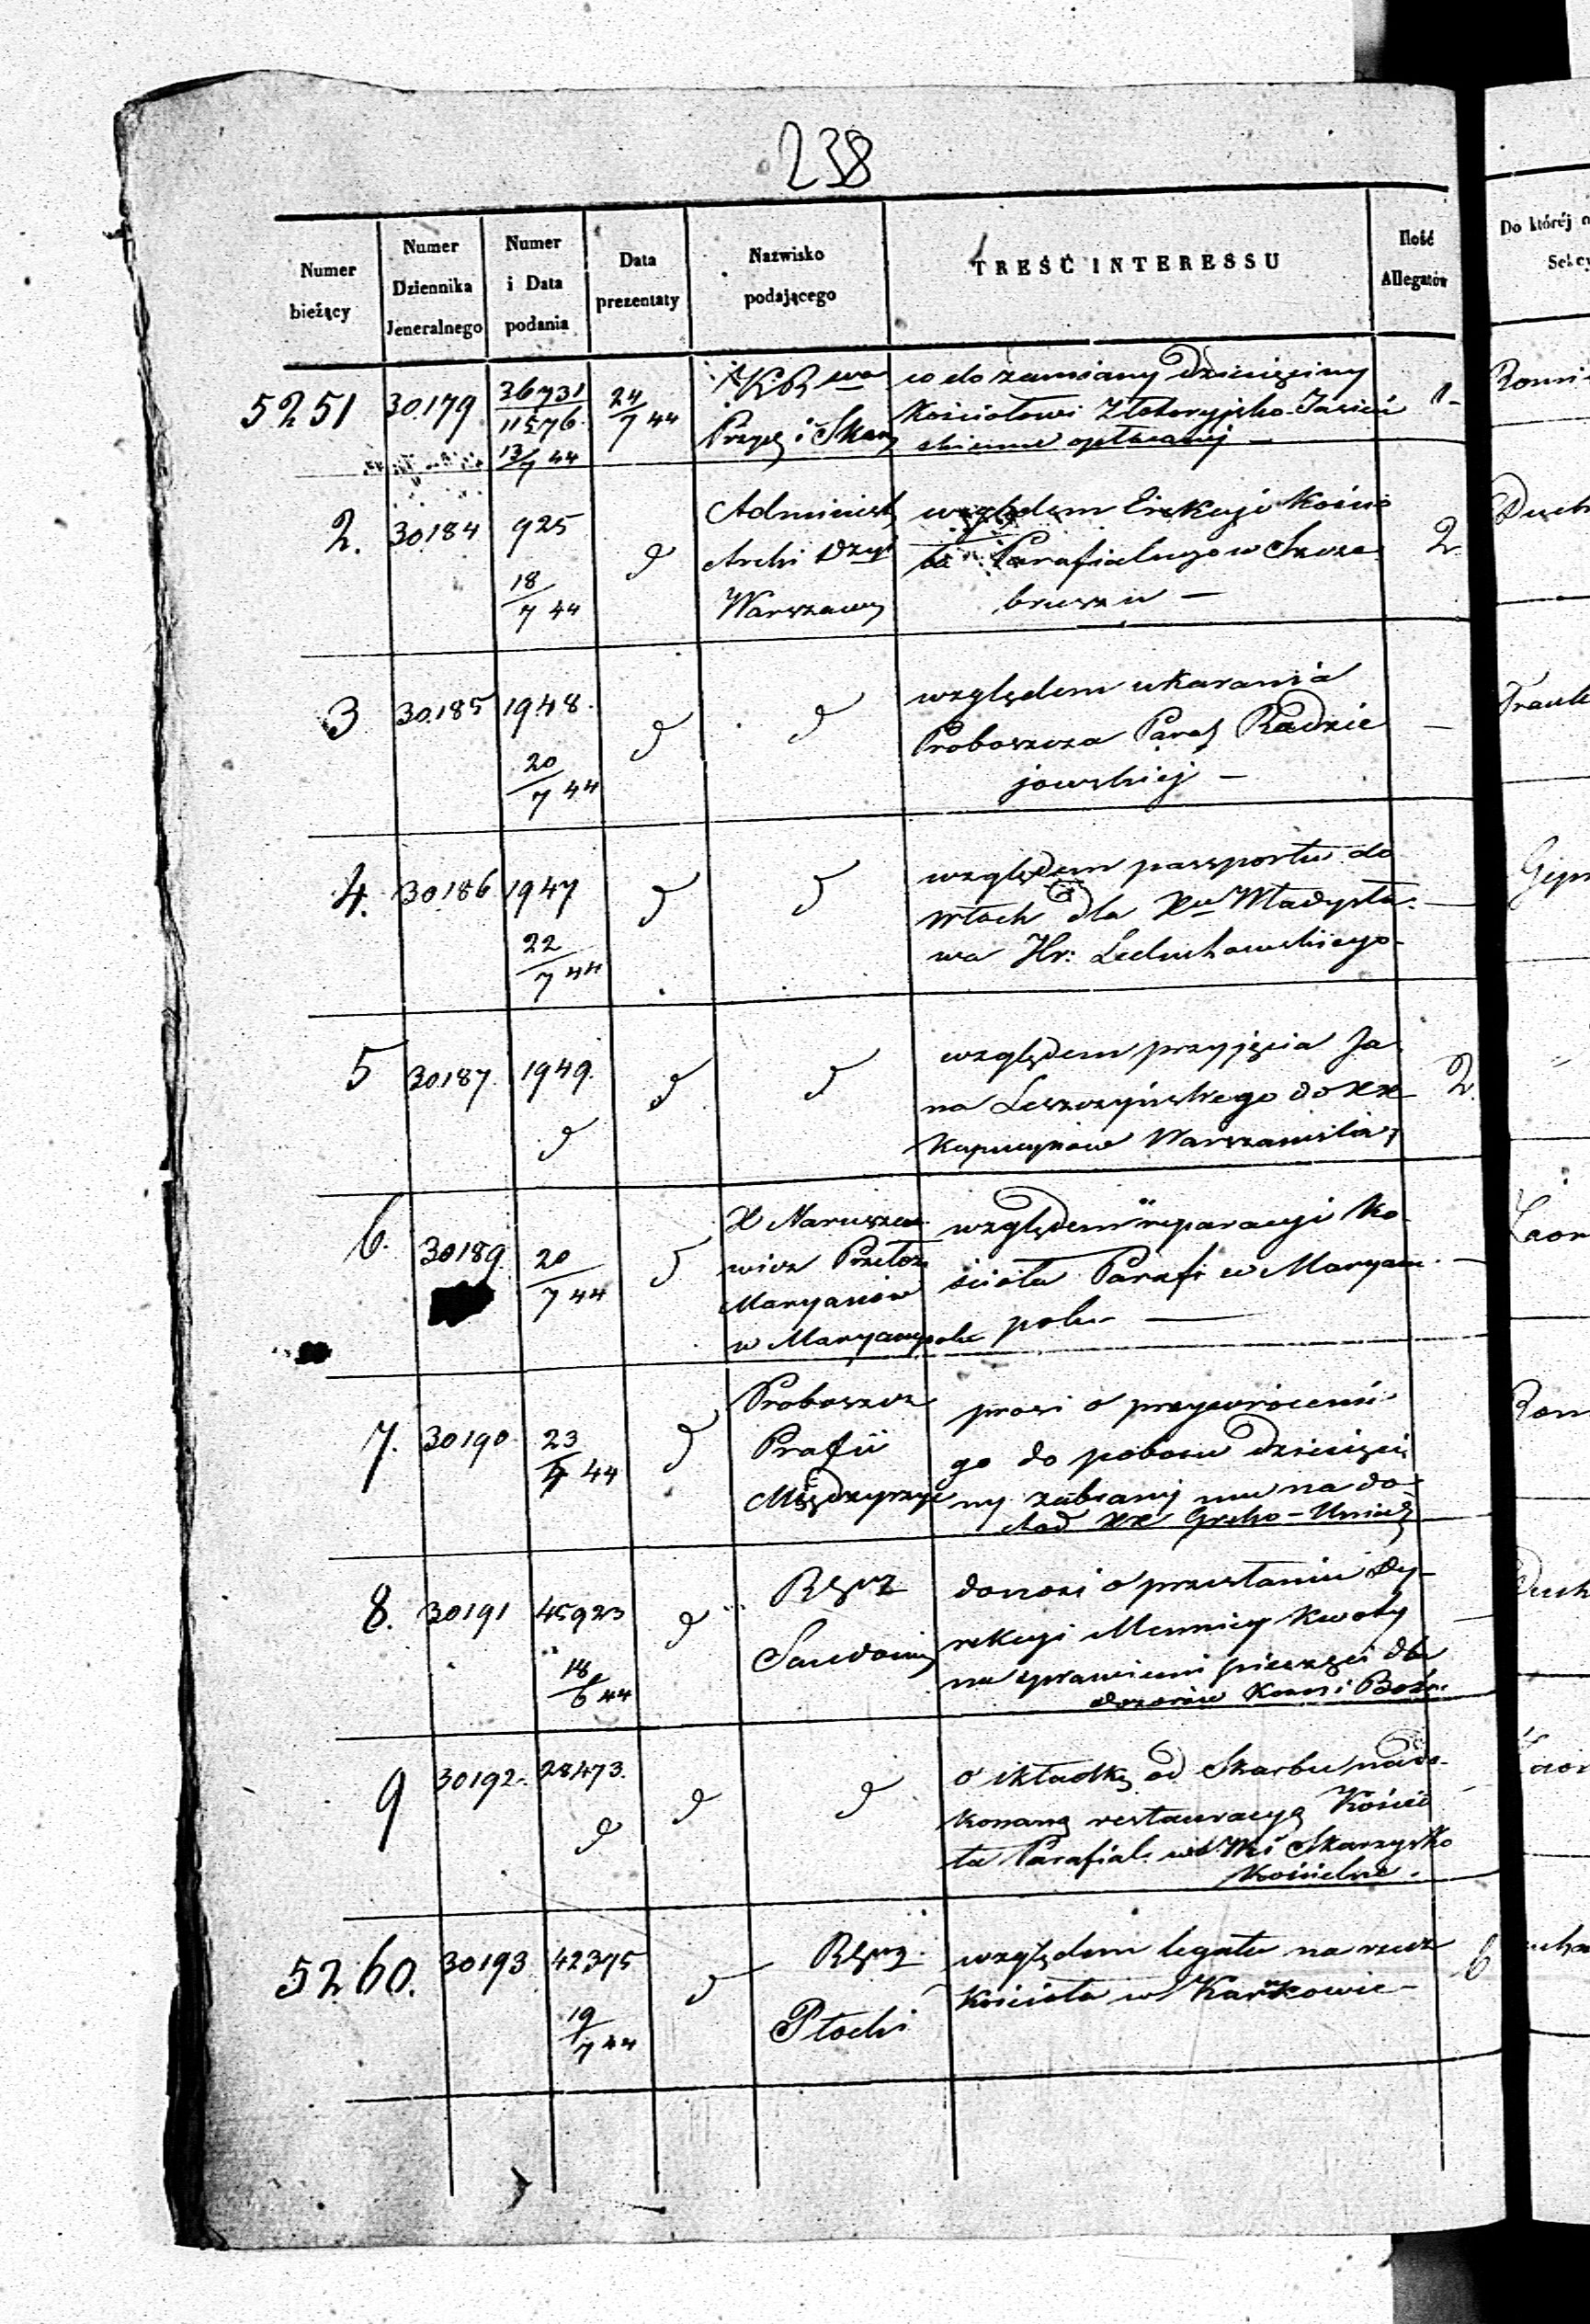 238
Numer bieżący
Numer Dziennika Jeneralnego
Numer i Data podania
Data prezentaty
Nazwisko podającego
TREŚĆ INTERESSU
Ilość Allegatów
Do któréj
5251 30179 36731 11576 13/7 44 24/7 44
K R wa
Przych i Skar
co do zamiany dziesięciny
Kościołowi Złotoryjsko-Jasień
1-
2. 30184 925 18/7 44 d
Administ
Archi Dzyi
Warszaws
względem Erekcyi Kościo
ła Parafialnego w Szcze
bruszu –
2.
3 30185 1948. 20/7 44 d d
względem ukarania
Proboszcza Paraf Radzie
jowskiej –
–
4. 30186 1947 22/7 44 d d
względem passportu do
Włoch dla Xa Władysła-
wa Hr: Leduchowskiego-
–
5 30187. 1949. d d d
względem przyjęcia Ja
na Leszczyńskiego do XX
Kapucynów Warszawskich
2.
6. 30189 20/7 44 d
X Naruszewicz Przełoż
Maryanów
w Maryampolu
względem reparacyi Ko
ścioła Parafi w Maryam-
polu –
–
7. 30190 23/7 44 d
Proboszcz
Prafii
Międzyrzyc
prosi o przywróceni
go do poboru dziesięci
ny zabranej mu na do-
chod XX Greko-Uniack
8. 30191 45923 18/6 44 d
Rządz
Sandomi
donosi o przesłaniu Dy-
rekcyi Mennicy kwoty
na sprawieni pieczęci dla
dozorów Kosc i Bożn.
–
9 30192. 28473. d d d
o składkę od Skarbu na do-
konaną restauracyą Kościo
ła Parafial. we Wsi Skarzysko
Kościelne.
5260. 30193 42375 19/7 44 d
Rządz
Płocki
względem legatu na rzecz
Kościoła w Karzkowie –
6